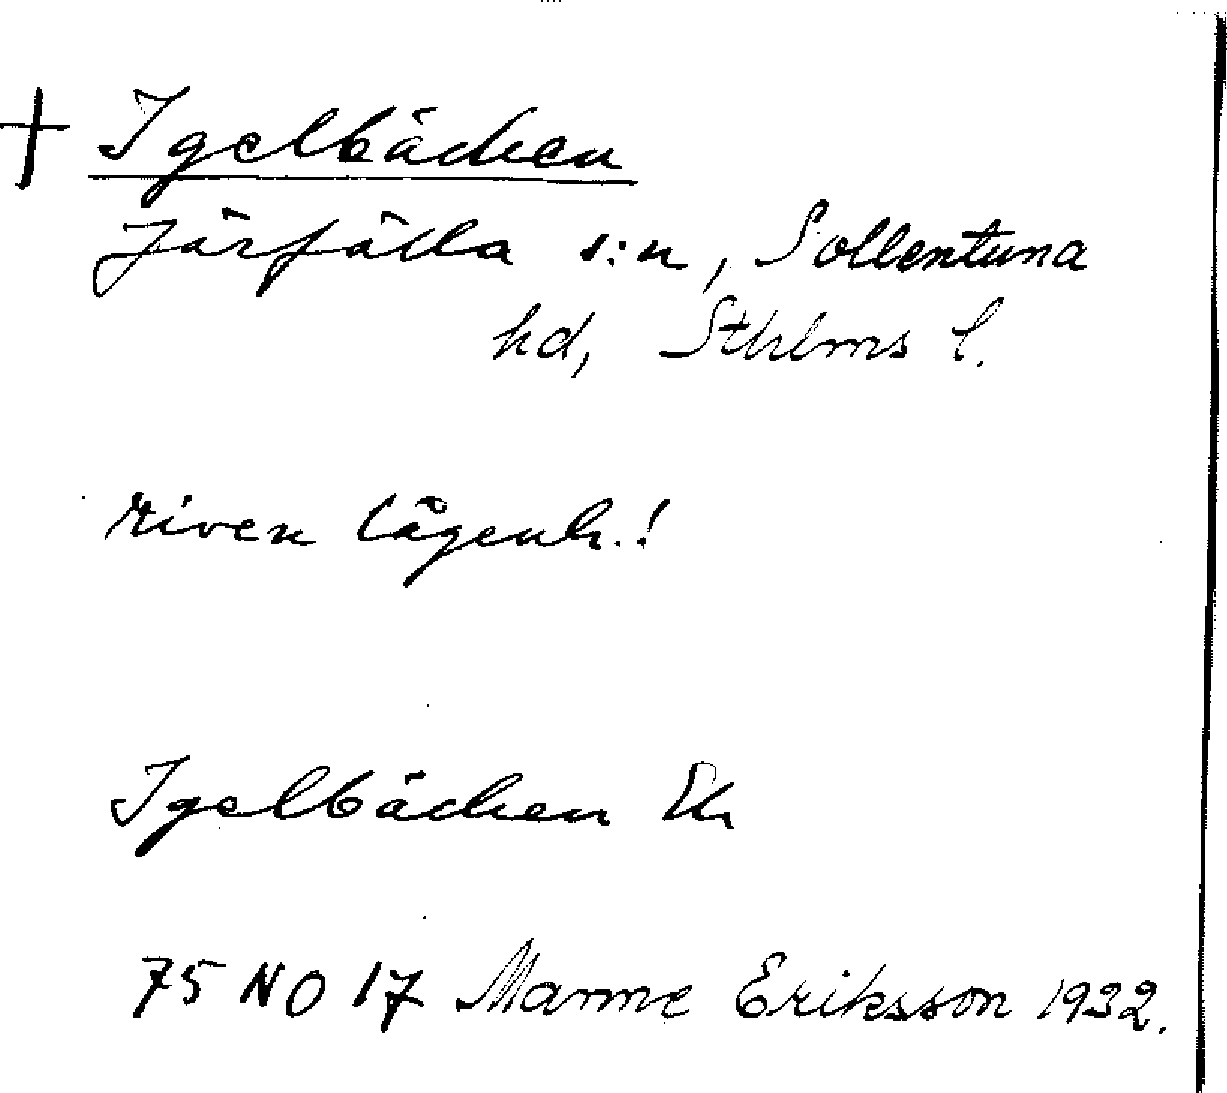 + Igelbäcken
Järfälla s:n, Sollentuna
hd, Sthlms l.
riven lägenh.!
Igelbäcken Ek
75 NO 17 Manne Eriksson 1932.